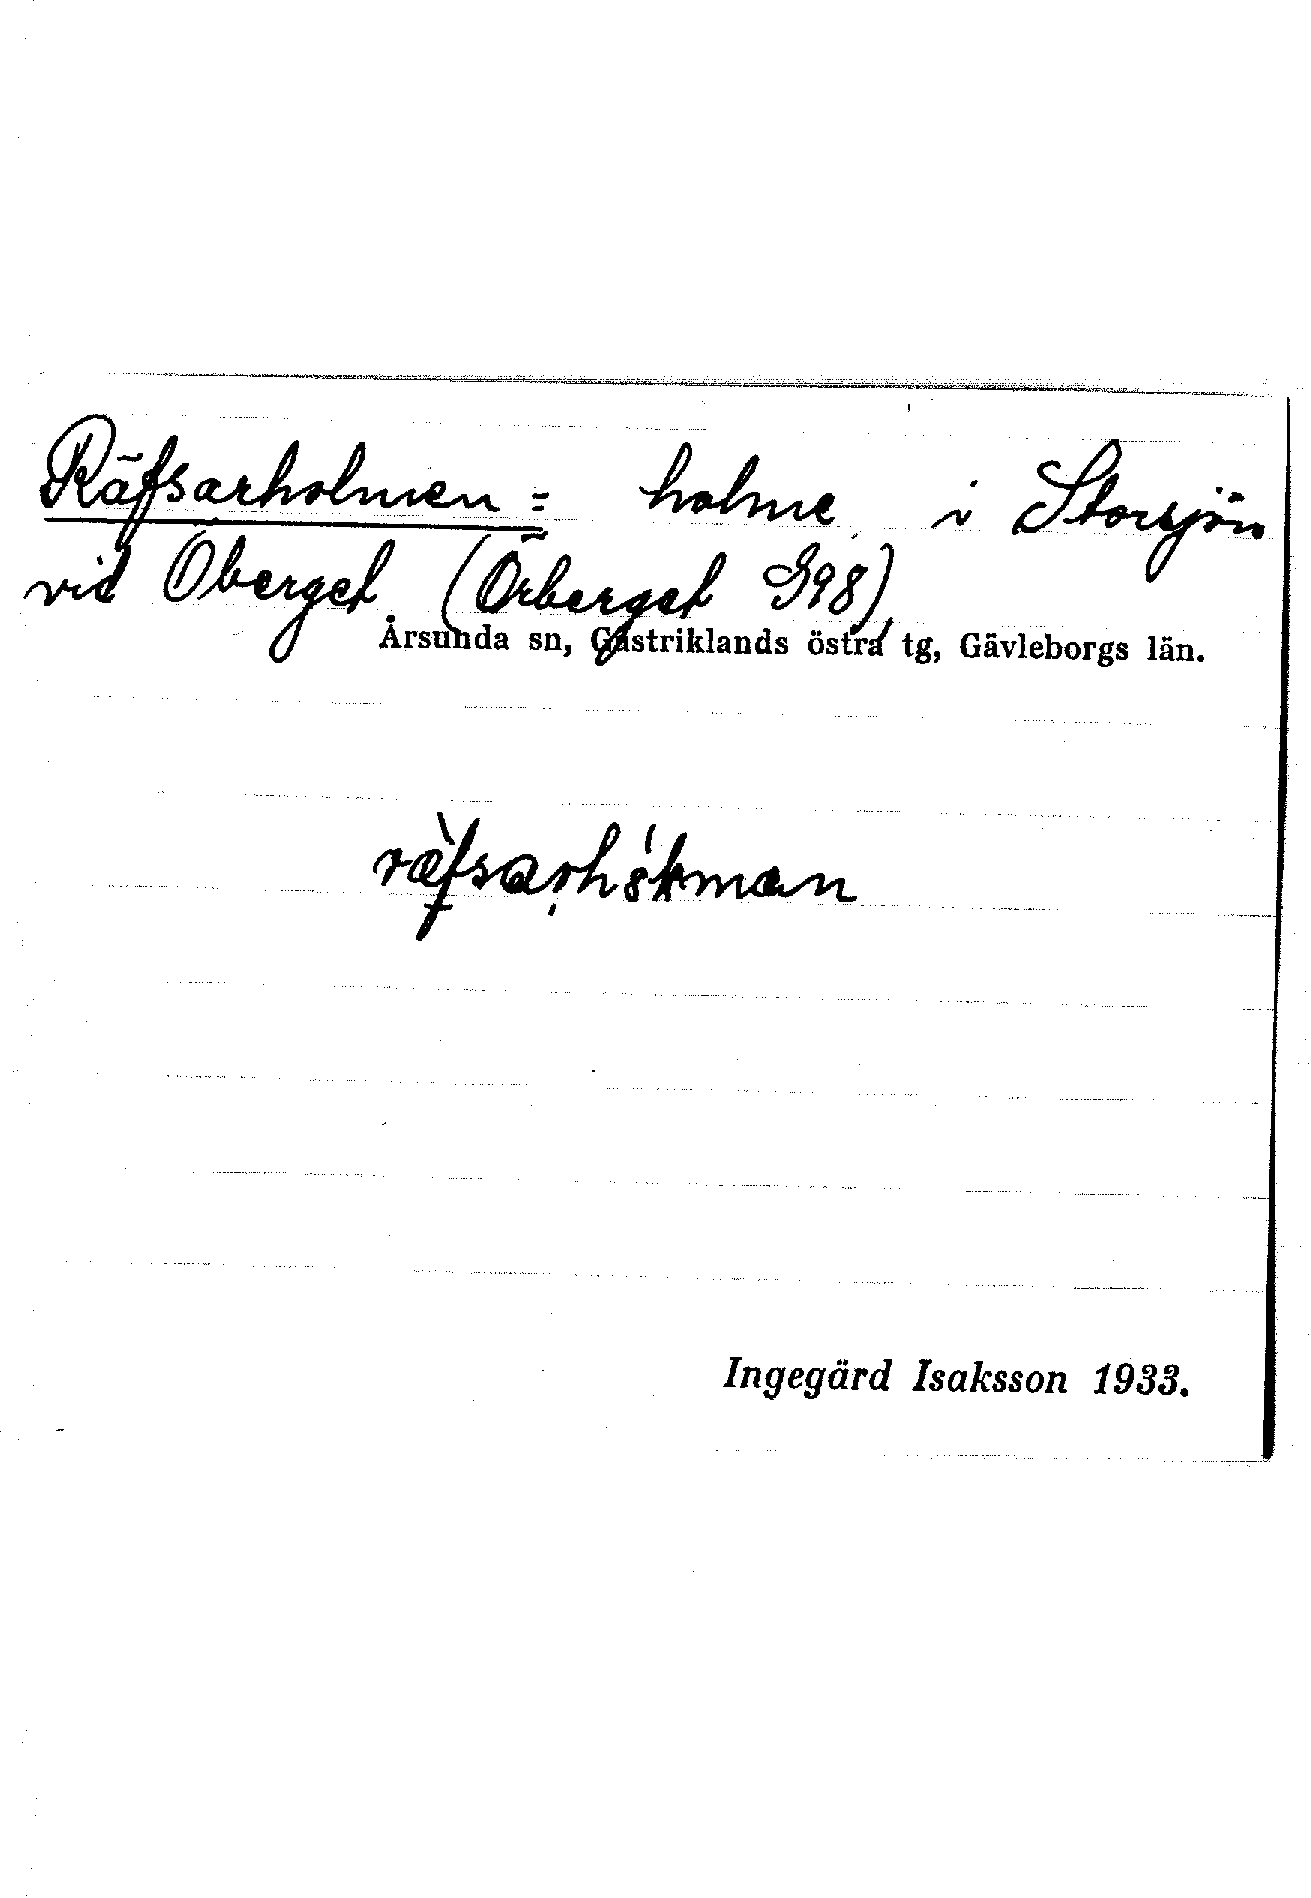 Räfsarholmen = holme i Storsjön
vid Öberget (Örberget G98)
Årsunda sn, Gästriklands östra tg, Gävleborgs län.
Ingegärd Isaksson 1933.